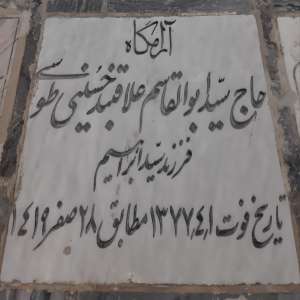 آرامگاه
حاج سید ابوالقاسم علاقبند حسینی طوسی
فرزند سید ابراهیم
تاریخ فوت ۱۳۷۷/۴/۱ مطابق ۲۸ صفر ۱۴۱۹